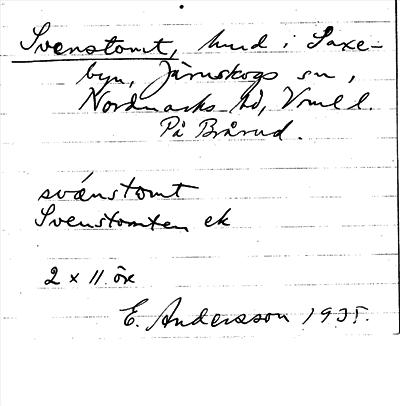 Svenstomt, hmd i Saxe-
byn, Järnskogs sn,
Nordmarks hd, Vrml l.
På Brårud.
svänstomt
Svenstomten ek
2 x 11. öx
E. Andersson 1935.